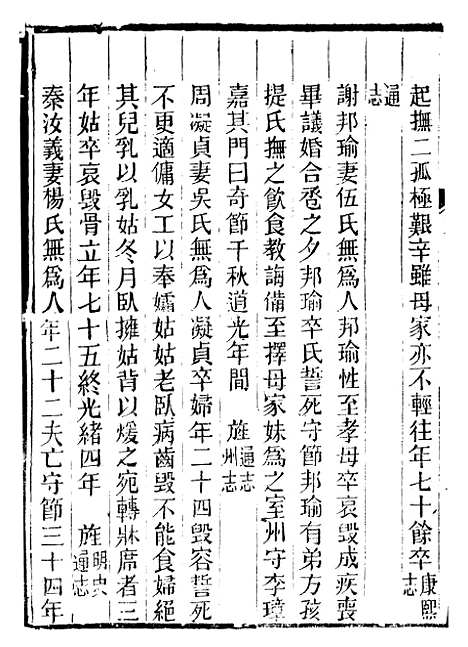 起撫二孤極艱辛雖母家亦不輕往年七十餘卒康熙志
通志
謝邦瑜妻伍氏無爲人邦瑜性至孝母卒哀毀成疾喪
畢議婚合卺之夕邦瑜卒氏誓死守節邦瑜有弟方孩
提氏撫之飲食教誨備至擇母家妹爲之室州守李璋
嘉其門曰奇節千秋道光年間 旌通志州志
周凝貞妻吳氏無爲人凝貞卒婦年二十四毀容誓死
不更適傭女工以奉孀姑姑老臥病齒毀不能食婦絕
其兒乳以乳姑冬月臥擁姑背以煖之宛轉牀席者三
年姑卒哀毀骨立年七十五終光緒四年 旌明史通志
秦汝義妻楊氏無爲人年二十二夫亡守節三十四年